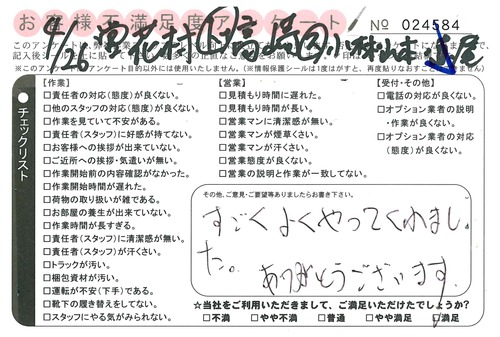 お客様不満足度アンケート
№ 024584
4/26
このアンケートは、
記入後シール
※このアンケートはアンケート目的以外には使用いたしません。(※情報保護シールは1度はがすと、再度貼りなおすことが
チェックリスト
【作業】
□責任者の対応(態度)が良くない。
□他のスタッフの対応(態度)が良くない。
□作業を見ていて不安がある。
□責任者(スタッフ)に好感が持てない。
□お客様への挨拶が出来ていない。
□ご近所への挨拶・気遣いが無い。
□作業開始前の内容確認がなかった。
□作業開始時間が遅れた。
□荷物の取り扱いが雑である。
□お部屋の養生が出来ていない。
□作業時間が長すぎる。
□責任者(スタッフ)に清潔感が無い。
□責任者(スタッフ)が汗くさい。
□トラックが汚い。
□梱包資材が汚い。
□運転が不安(下手)である。
□靴下の履き替えをしてない。
□スタッフにやる気がみられない。
【営業】
□見積もり時間に遅れた。
□見積もり時間が長い。
□営業マンに清潔感が無い。
□営業マンが煙草くさい。
□営業マンが汗くさい。
□営業態度が良くない。
□営業の説明と作業が一致してない。
【受付・その他】
□電話の対応が良くない。
□オプション業者の説明
・作業が良くない。
□オプション業者の対応
(態度)が良くない。
その他、ご意見・ご要望等ありましたらお書き下さい。
すごくよくやってくれまし
た。
ありがとうございます
☆当社をご利用いただきまして、ご満足いただけたでしょうか?
□不満 □やや不満 □普通 □やや満足 □満足